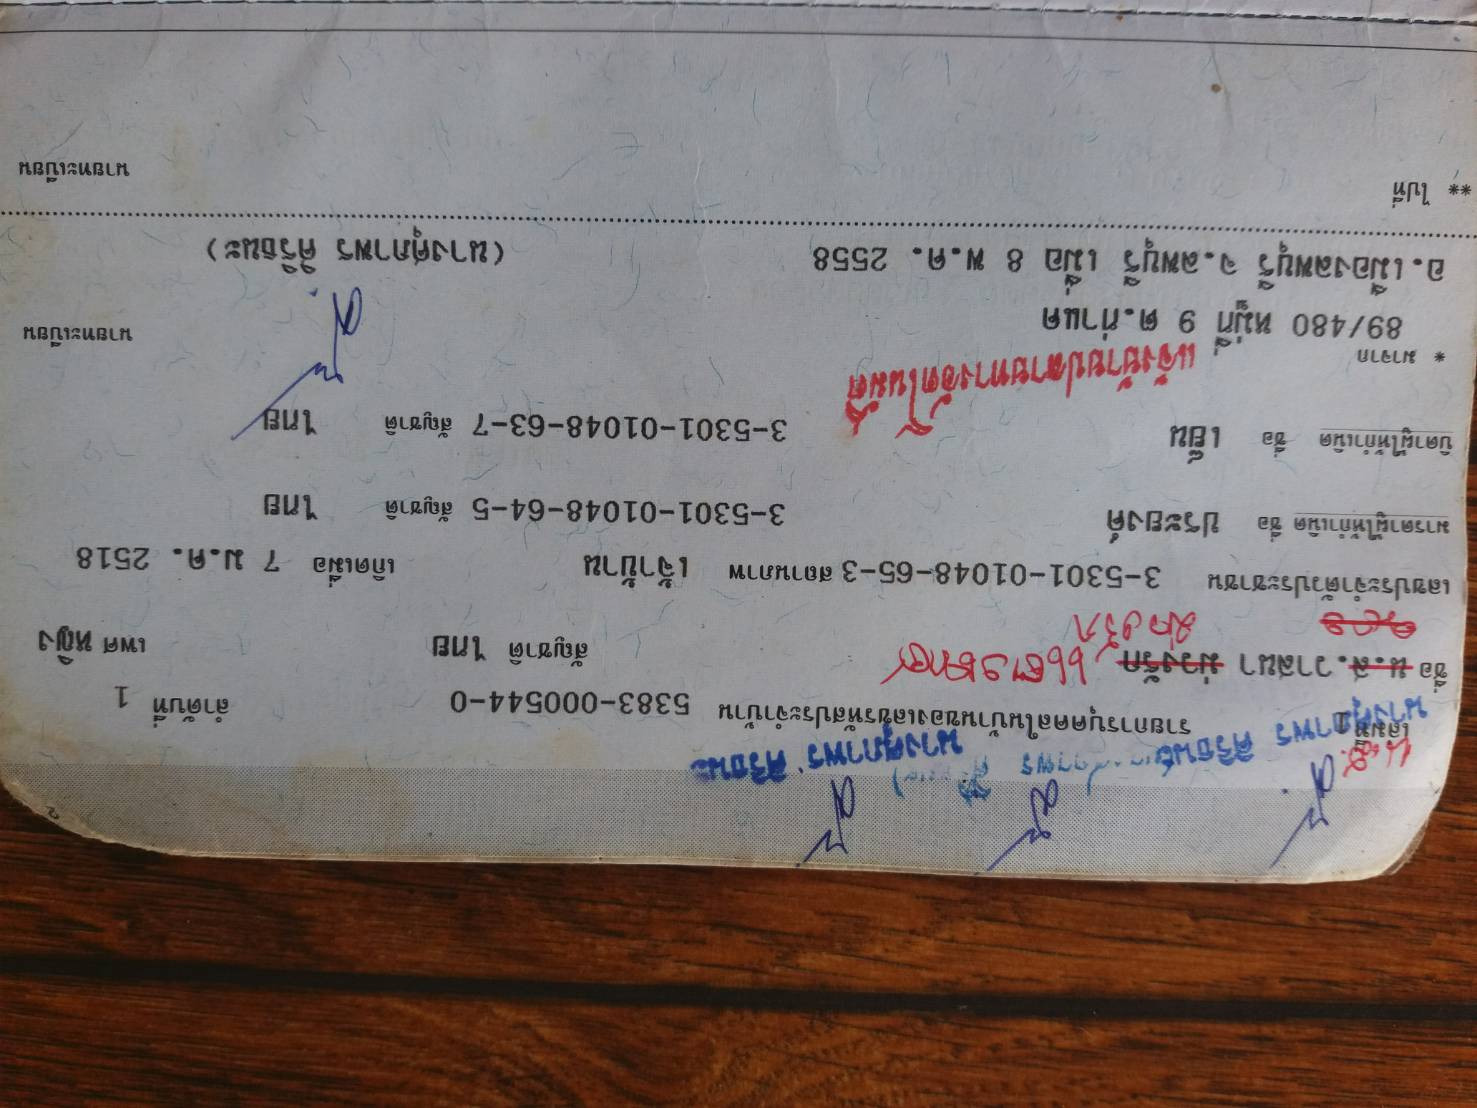 เล่มที่ 1 รายการบุคคลในบ้านของเลขรหัสประจำบ้าน 5383-000544-0 ลำดับที่ 1
นางศุภาพร ศิริธนะ นางศุภาพร ศิริธนะ
ชื่อ น.ส. วาสนา ม่วงรัก สัญชาติ ไทย เพศ หญิง
เลขประจำตัวประชาชน 3-5301-01048-65-3 สถานภาพ เจ้าบ้าน เกิดเมื่อ 7 ม.ค. 2518
มารดาผู้ให้กำเนิด ชื่อ ประยงค์ 3-5301-01048-64-5 สัญชาติ ไทย
บิดาผู้ให้กำเนิด ชื่อ เย็น 3-5301-01048-63-7 สัญชาติ ไทย
แจ้งย้ายปลายทางอัตโนมัติ
* มาจาก
89/480 หมู่ที่ 9 ต.ท่าแค นายทะเบียน
อ.เมืองลพบุรี จ.ลพบุรี เมื่อ 8 พ.ค. 2558 (นางศุภาพร ศิริธนะ)
** ไปที่ นายทะเบียน